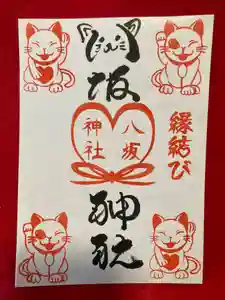 八坂神社
縁結び
八坂
神社